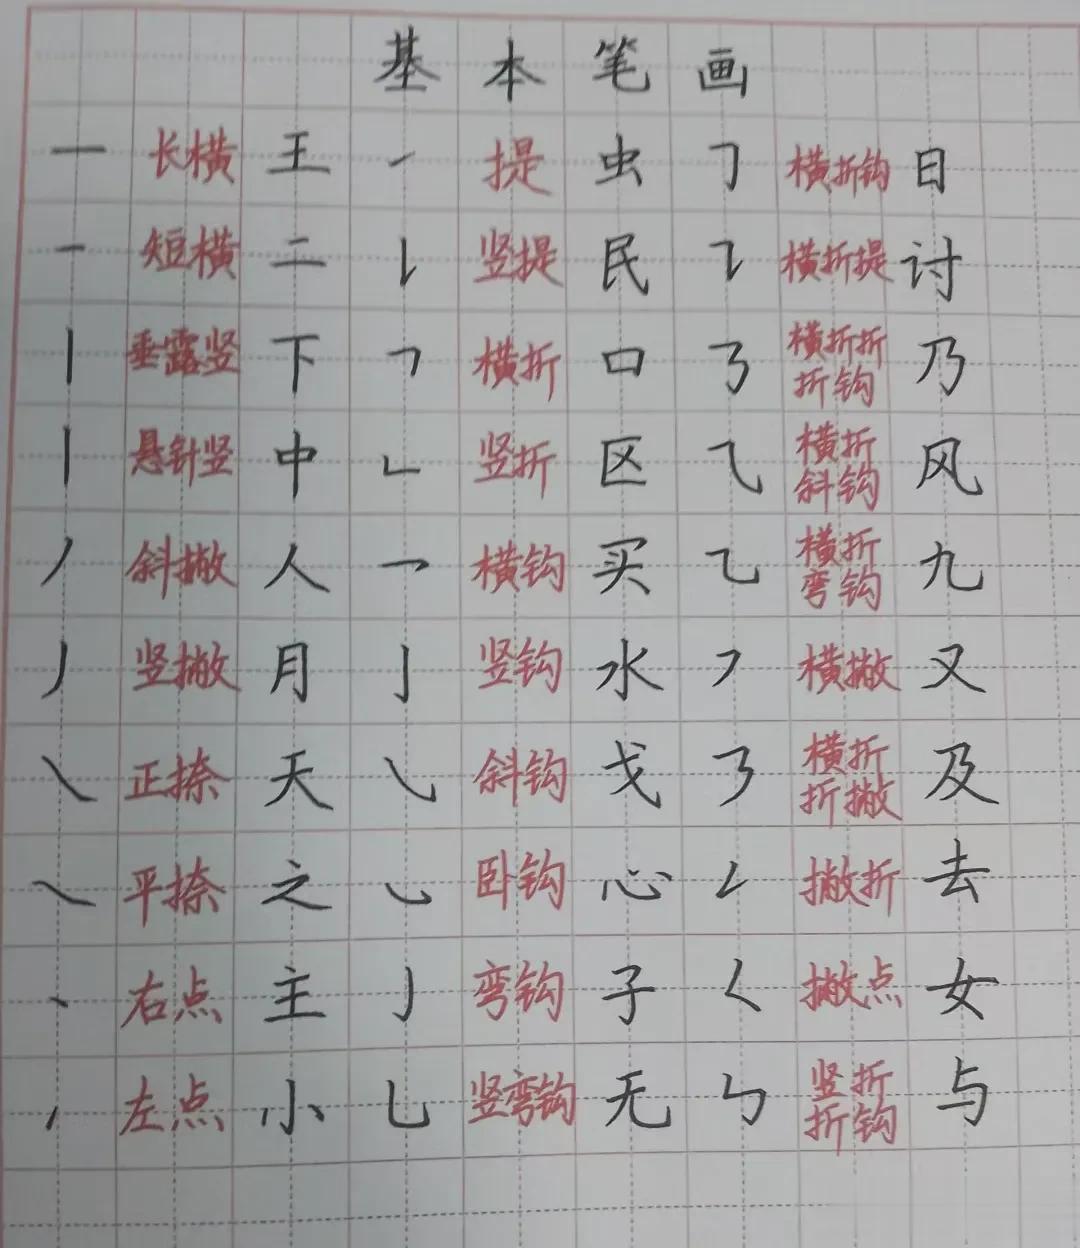 基本笔画
一 长横 王 ㇀ 提 虫 ㇆ 横折钩 日
一 短横 二 ㇙ 竖提 民 ㇊ 横折提 讨
丨 垂露竖 下 ㇕ 横折 口 ㇡ 横折折折钩 乃
丨 悬针竖 中 ㇗ 竖折 区 ⺄ 横折斜钩 风
丿 斜撇 人 ㇖ 横钩 买 ㇈ 横折弯钩 九
丿 竖撇 月 亅 竖钩 水 ㇇ 横撇 又
㇏ 正捺 天 ㇂ 斜钩 戈 ㇋ 横折折撇 及
㇏ 平捺 之 ㇃ 卧钩 心 ㇜ 撇折 去
丶 右点 主 ㇁ 弯钩 子 ㇛ 撇点 女
㇒ 左点 小 ㇟ 竖弯钩 无 ㇉ 竖折折钩 与